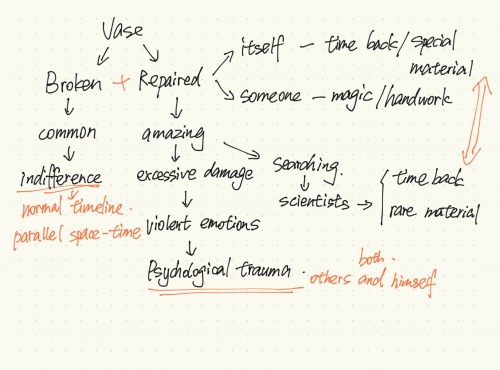 Vase
itself – time back/special material
Broken + Repaired
someone – magic/handwork
common
amazing
indifference
excessive damage
searching.
scientists → { time back
rare material
normal timeline.
parallel space-time
violent emotions
Psychological trauma.
both.
others and himself